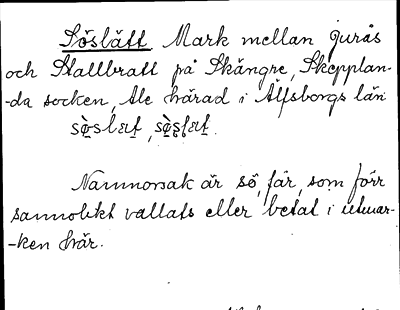 Söslätt Mark mellan Jurås
och Stallbratt på Skängre, Skepplan-
-da socken, Ale härad i Älfsborgs län
Namnorsak är sö, får, som förr
sannolikt vallats eller betat i utmar-
-ken här.